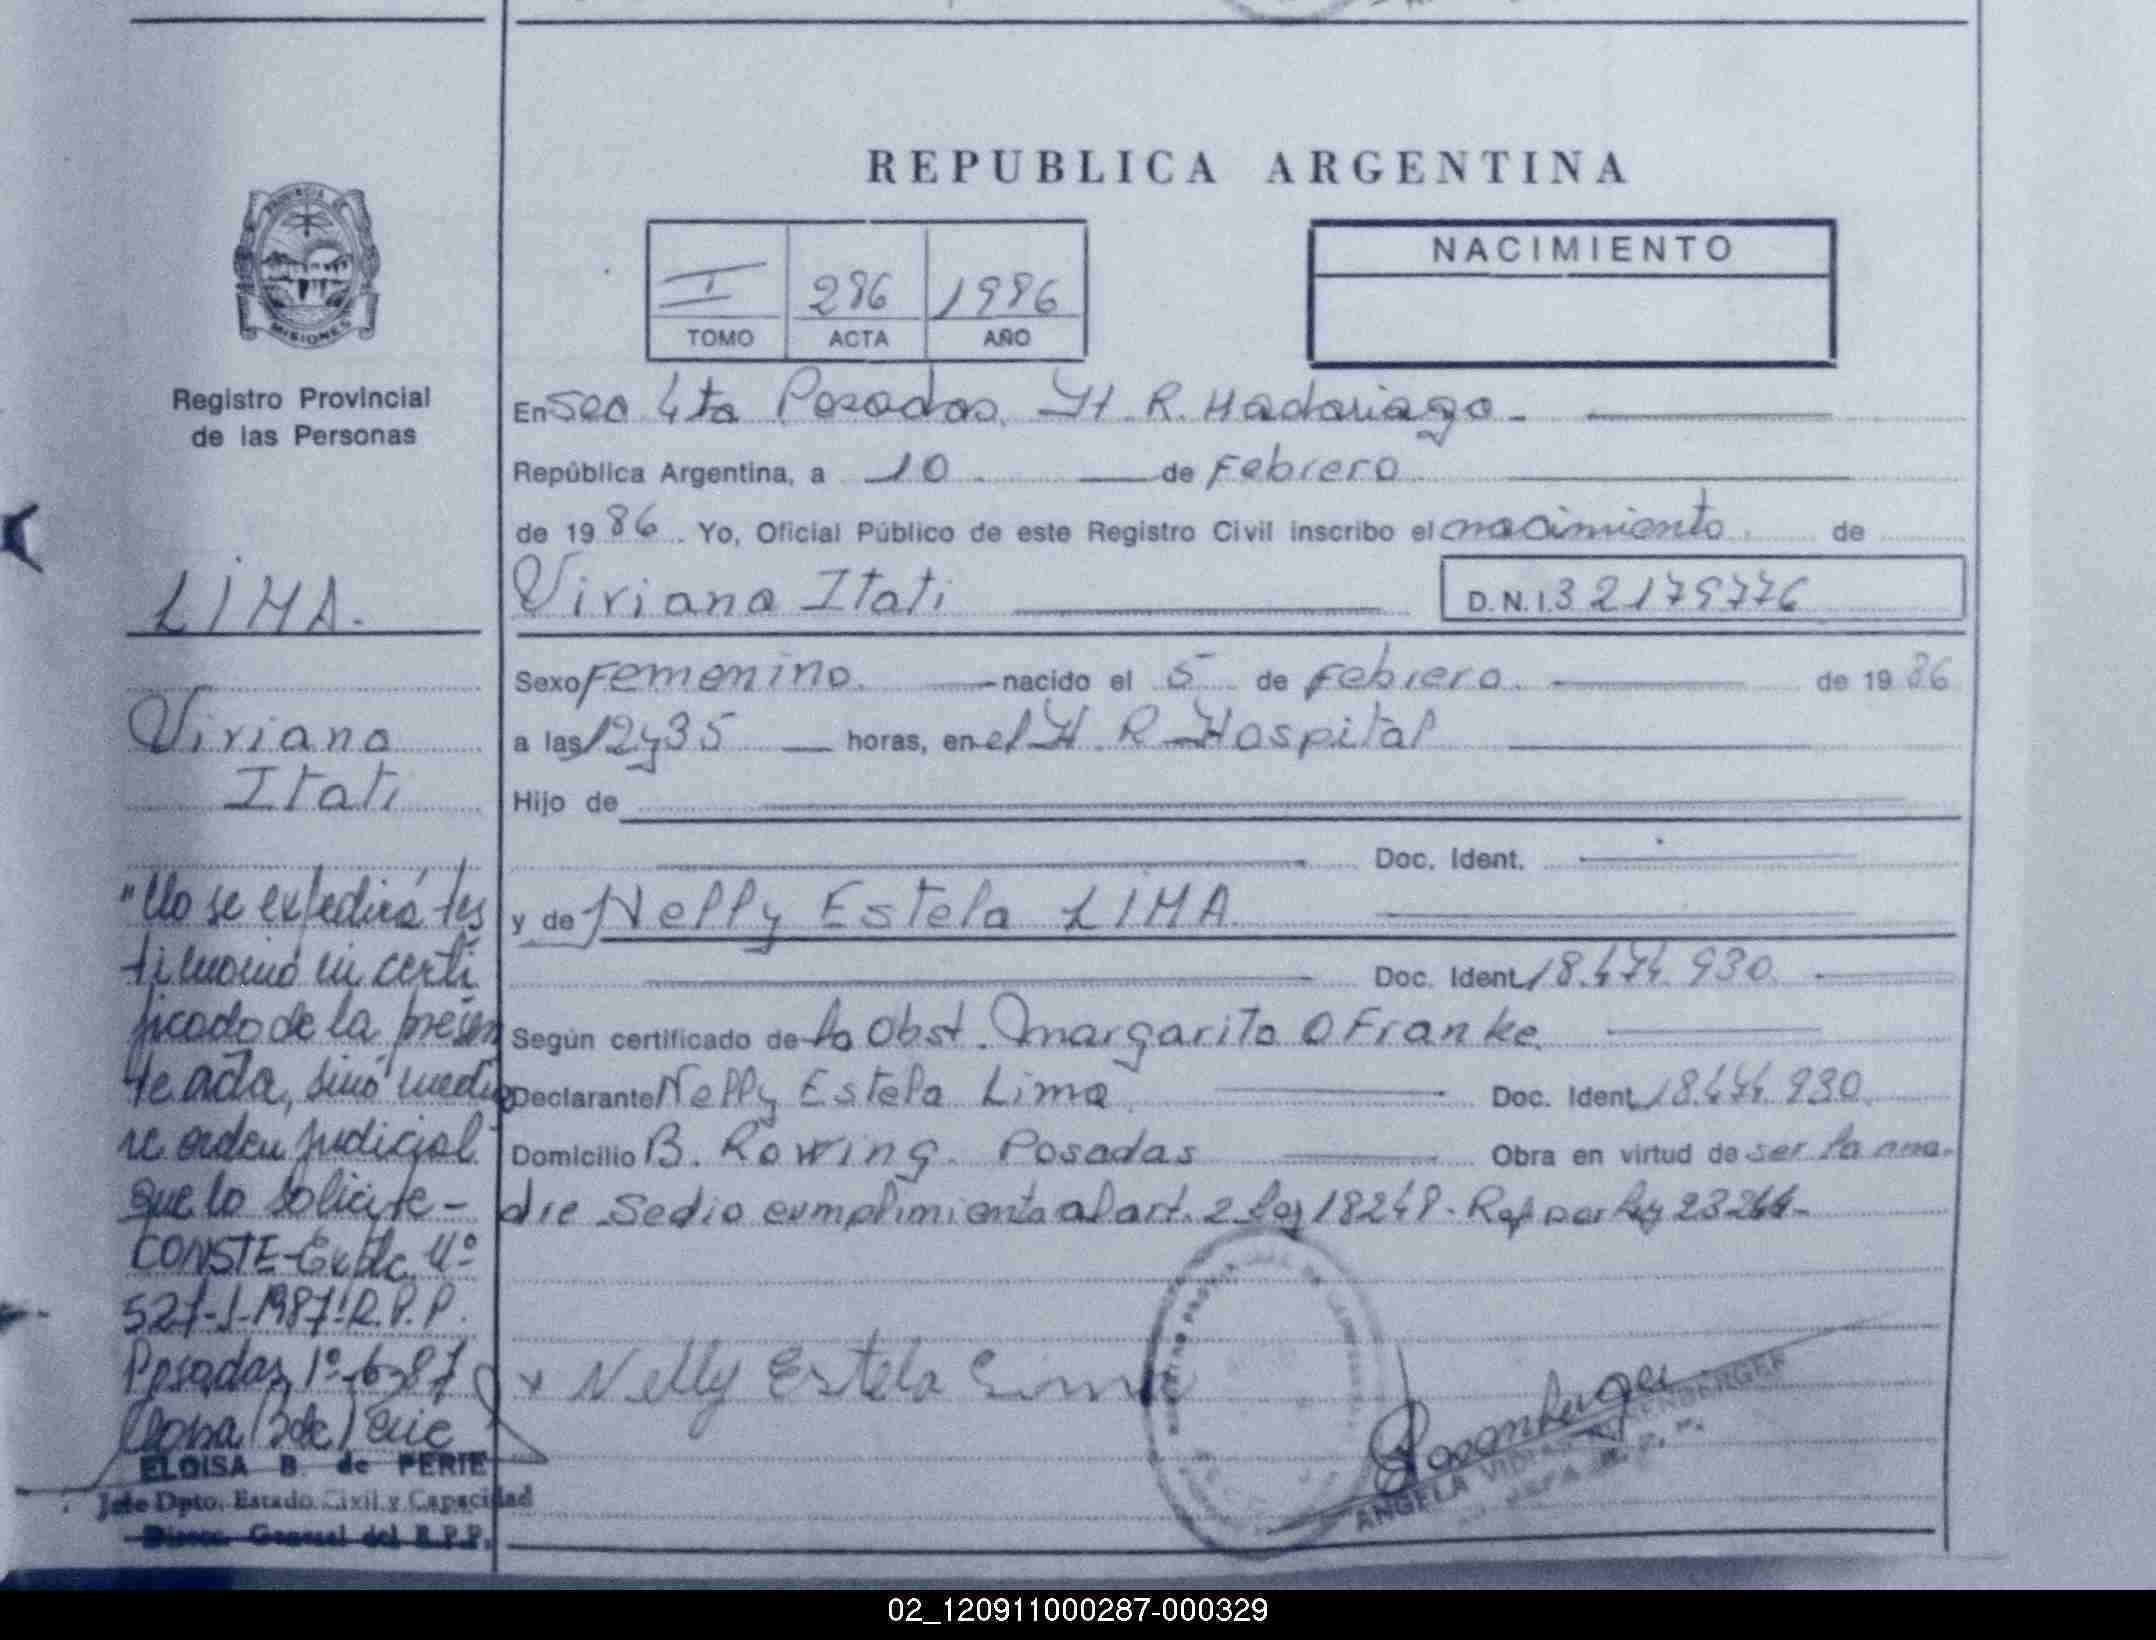 REPUBLICA ARGENTINA
PROVINCIA
MISIONES
Registro Provincial
de las Personas
I 286 1986
TOMO ACTA AÑO
NACIMIENTO
En Sec 4ta Posadas, H. R. Madariaga
República Argentina, a 10 de Febrero
de 1986. Yo, Oficial Público de este Registro Civil inscribo el nacimiento de
Viviana Itati D.N.I. 32179776
Sexo Femenino nacido el 5 de Febrero de 1986
a las 12y35 horas, en el H. R Hospital
Hijo de
Doc. Ident.
y de Nelly Estela LIMA
Doc. Ident. 18.474.930
Según certificado de la Obst. Margarita O Franke
Declarante Nelly Estela Lima Doc. Ident. 18.474.930
Domicilio B. Rowing. Posadas Obra en virtud de ser la ma-
dre Se dio cumplimiento al art. 2 Ley 18248. Ref por Ley 23264-
x Nelly Estela Lima
ANGELA ROSENBERGER
LIMA.
Viviana
Itati
"No se expedirá tes
timonio ni certi
ficado de la presen
te acta, sino media
te orden judicial
que lo solicite-
CONSTE-Expte. Nº
527-J-1987-R.P.P.
Posadas, 1º-6-87
ELOISA B. de PERIE
Jefe Dpto. Estado Civil y Capacidad
Direc. General del R.P.P.
02_120911000287-000329